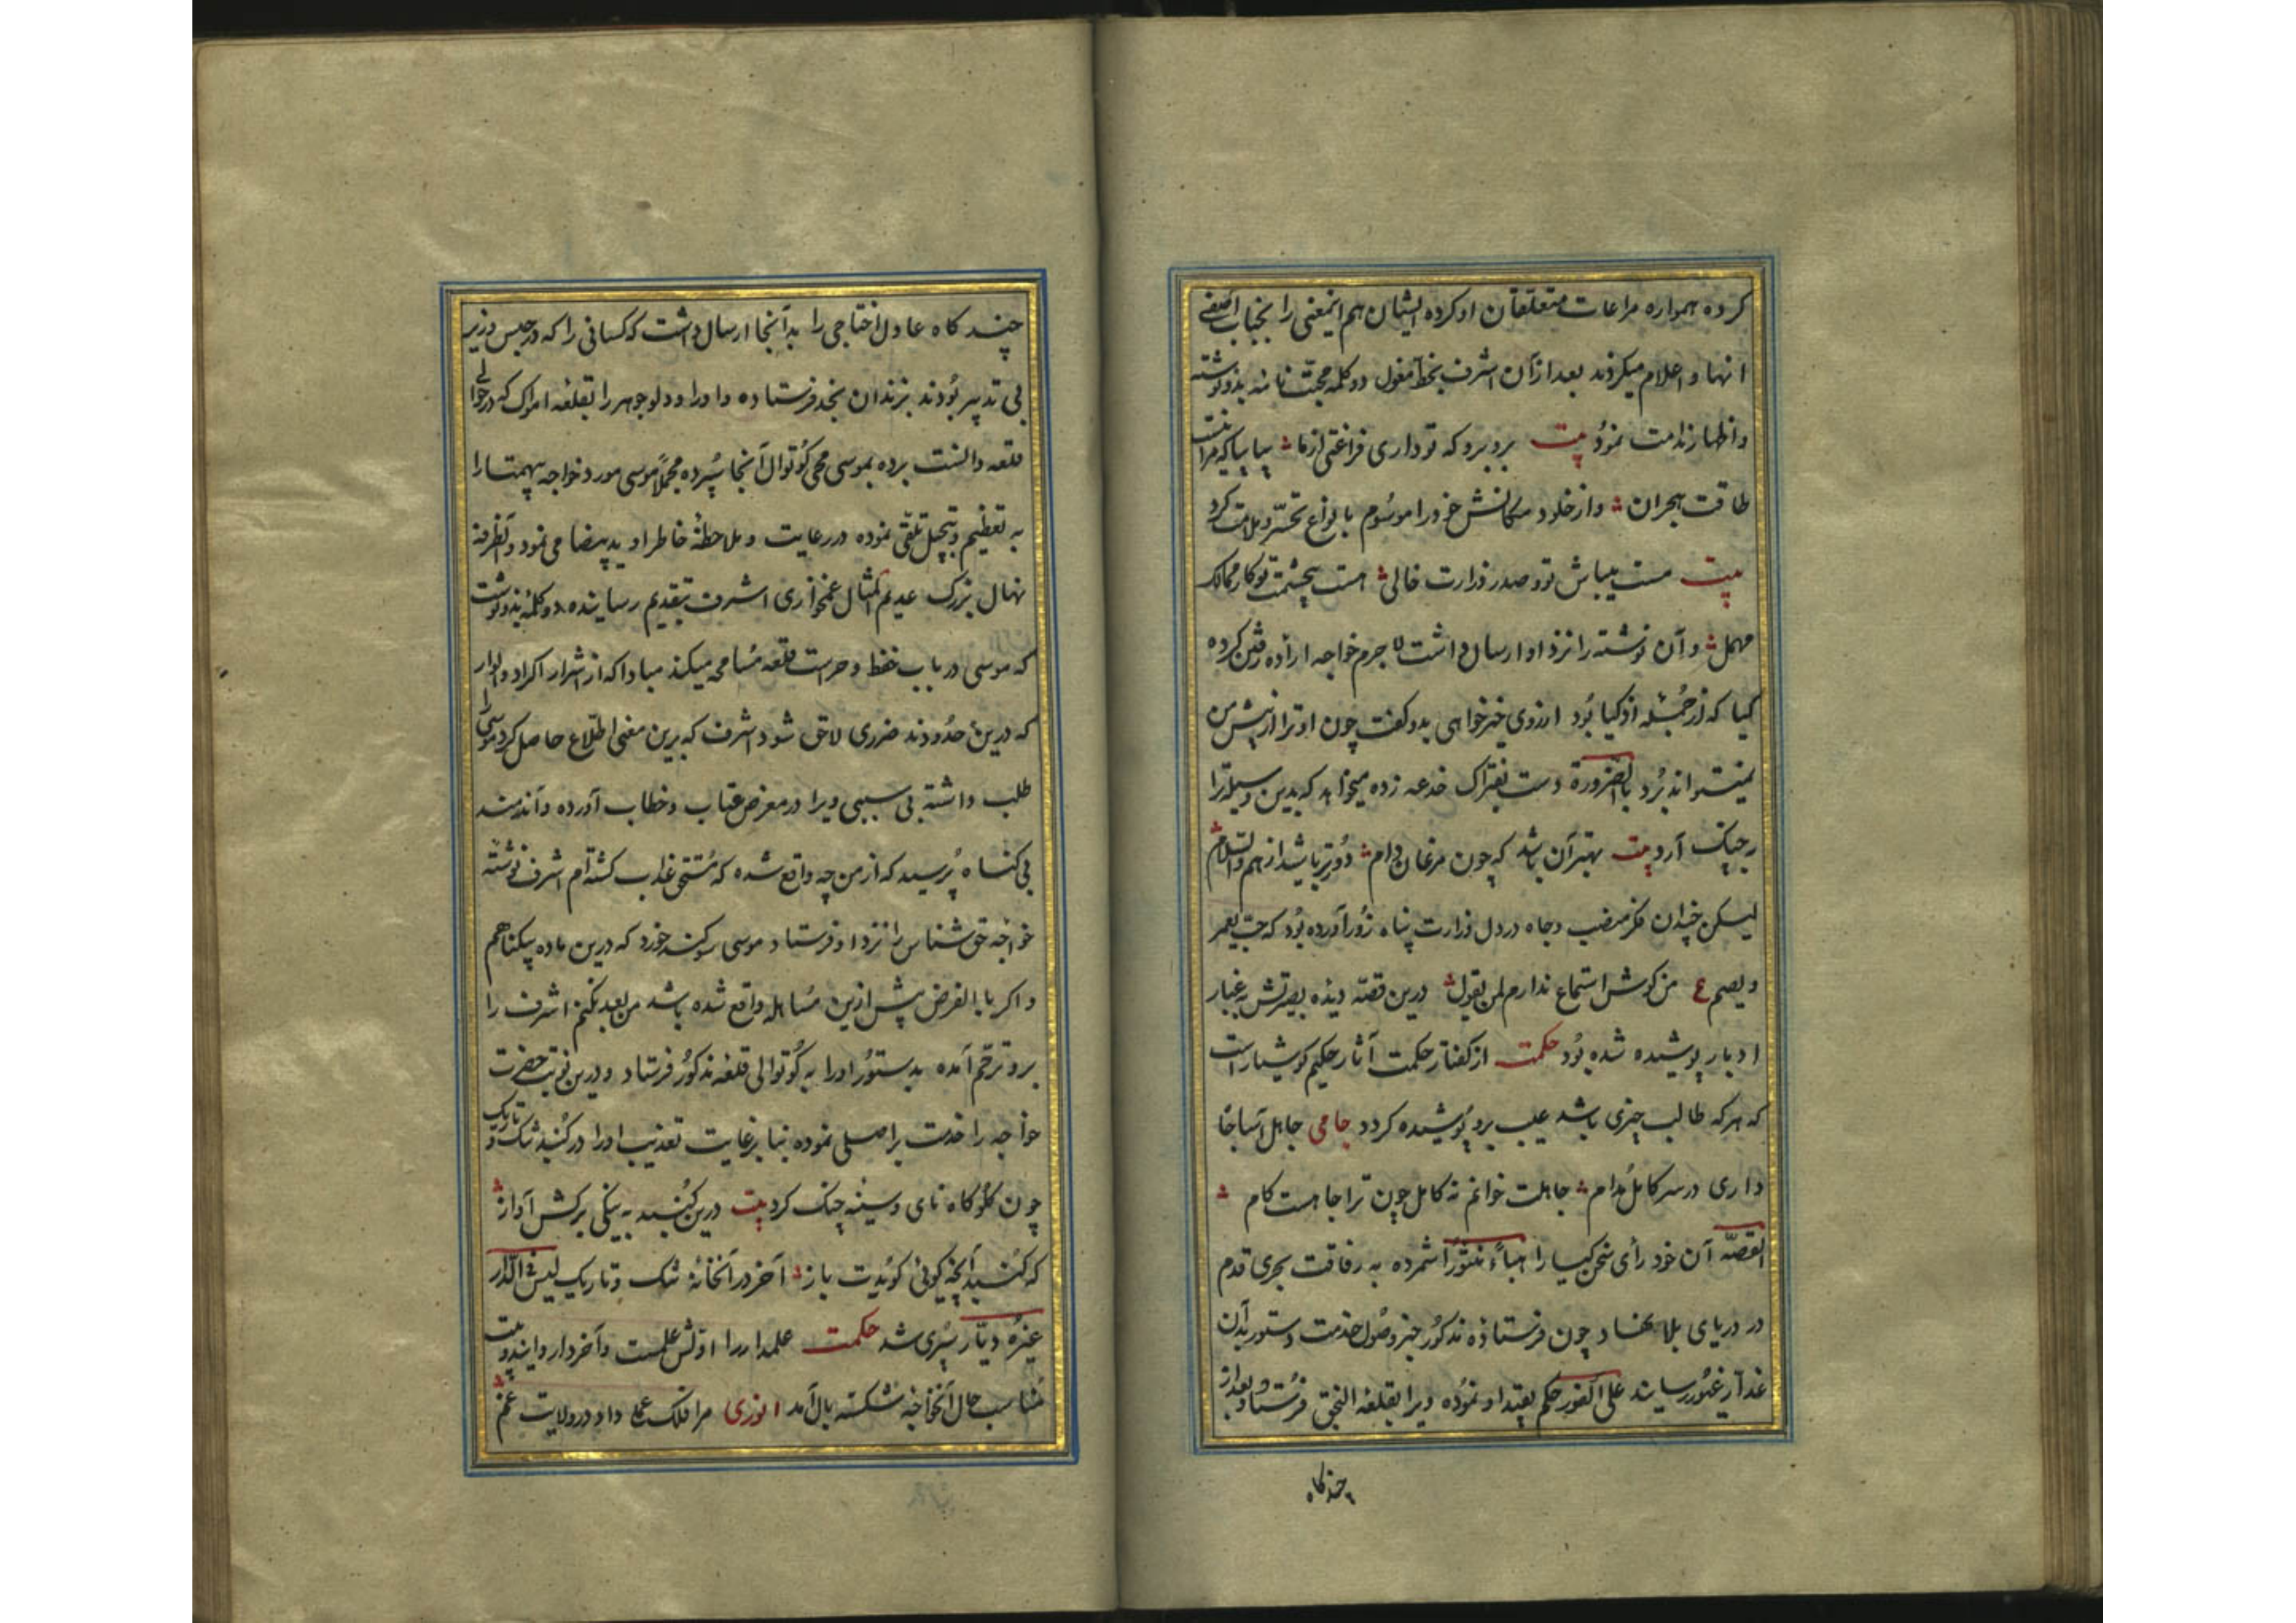 کرده همواره مراعات متعلقان او کرده ایشان هم اینمعنی را بجناب آصفی
انها و اعلام میکردند بعد از آن اشرف بخط مغول دو کلمه محبت نامه بدو نوشته
و اظهار ندامت نمود بیت برو برو که تو داری فراغتی از ما بیا بیا که مرا نیست
طاقت هجران و از خلود مکانش خود را موسوم بانواع تحسر و ملامت کرد
بیت مست بیباش تو و صدر وزارت خالی هست بچشمت تو کار ممالک
مهمل و آن نوشته را نزد او ارسال داشت لا جرم خواجه اراده رفتن کرده
کیا که از جمله اذکیا بود از روی خیرخواهی بدو گفت چون او ترا از پیش من
نمیتواند برد بالضرورة دست بفتراک خدعه زده میخواهد که بدین وسیله ترا
بچنک آرد بیت بهتر آن باشد که چون مرغان دام دورتر باشید از هم والسلام
لیکن چندان فکر منصب و جاه در دل وزارت پناه زور آورده بود که حب یعمر
و یصم ع من کوش استماع ندارم لمن یقول درین قصه دیده بصیرتش بغبار
ادبار پوشیده شده بود حکمت از کفتار حکمت آثار حکیم کوشیار است
که هر که طالب چیزی باشد عیب برو پوشیده کردد جامی جاهل آسا جا
داری در سر کامل مدام جاهلت خوانم نه کامل چون ترا جا هست کام
القصه آن خود رأی سخن کیا را هباءً منثوراً شمرده به رفاقت بحری قدم
در دریای بلا نهاد چون فرستاده مذکور خبر وصول خدمت دستور بدآن
غدار غیور رسانید علی الفور حکم بقید او نموده ویرا بقلعه النجق فرستاد و بعد از
چند کاه
چند کاه عادل اختاجی را بدآنجا ارسال داشت که کسانی را که در حبس وزیر
بی تدبیر بودند بزندان بخد فرستاده و او را و دلو جوهر را بقلعه اموک که در حوالی
قلعه والنست برده بموسی محمی کوتوال آنجا سپرده مجملاً موسی مورد خواجه بیهمتا را
به تعظیم و تبجیل تلقی نموده در رعایت و ملاحظهٔ خاطر او ید بیضا می نمود و آنطرفه
نهال بزرک عدیم المثال غمخواری اشرف بتقدیم رسانیده دو کلمه بدو نوشت
که موسی در باب حفظ و حراست قلعه مسامحه میکند مبادا که از اشرار اکراد و الوار
که درین حدودند ضرری لاحق شود اشرف که برین معنی اطلاع حاصل کرد موسی را
طلب داشته بی سببی ویرا در معرض عتاب و خطاب آورده و آندمند
بی کناه پرسید که از من چه واقع شده که مستحق عذاب کشته‌ام اشرف نوشته
خواجه حق شناس را نزد او فرستاد موسی سوکند خورد که درین ماده بیکناهم
و اکر بالفرض پیش ازین مساهله واقع شده باشد من بعد نکنم اشرف را
برو ترحم آمده بدستور او را به کوتوالی قلعه مذکور فرستاد و درین نوبت حضرت
خواجه را خدمت براصلی نموده بنا بر غایت تعذیب او را در کنبد تنک و تاریک
چون کلوکاه نای و سینه چنک کرد بیت درین کنبد به نیکی برکش آواز
که کنبد آنچه کوئی کویدت باز آخر در آنخانهٔ تنک و تاریک لیس فی الدار
غیره دیار سپری شد حکمت علمدار را اولش علمست و آخر دار و این دو بیت
مناسب حال آنخواجه شکسته بال آمد انوری مرا فلک عملی داد در ولایت غم